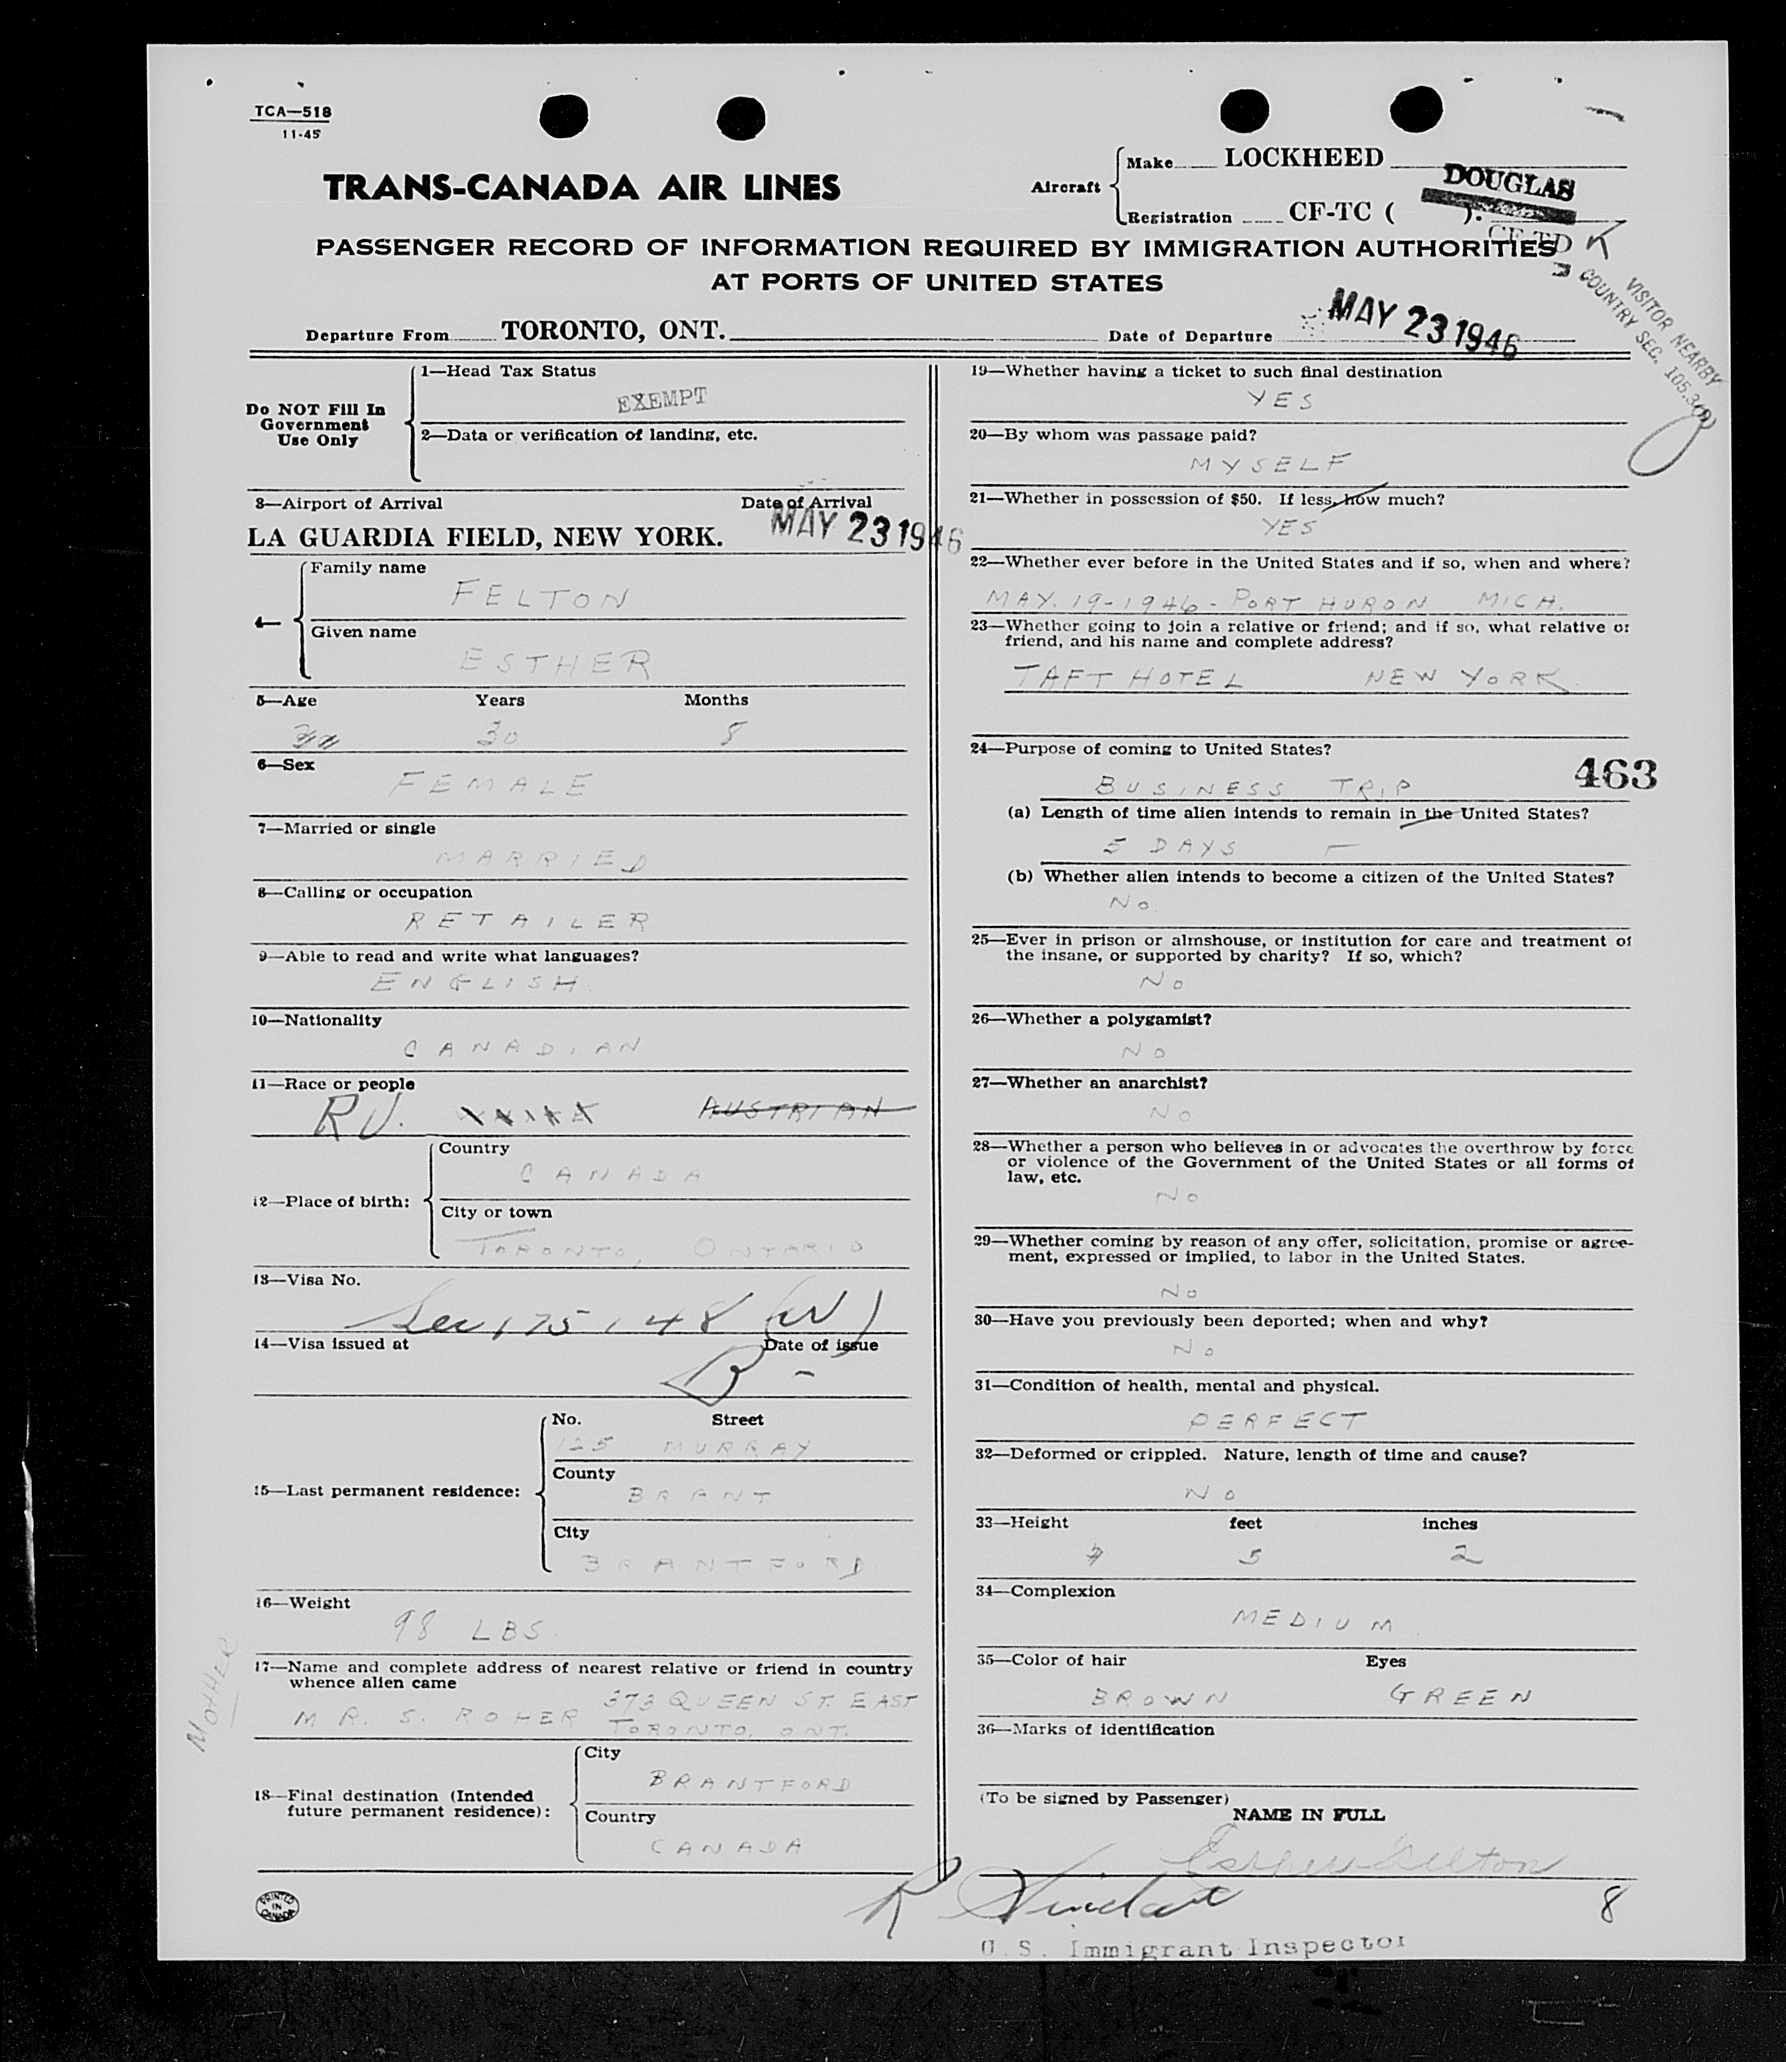 TCA—518
11-45
TRANS-CANADA AIR LINES
Aircraft
Make LOCKHEED
DOUGLAS
Registration CF-TC ( ).
CF-TD K
PASSENGER RECORD OF INFORMATION REQUIRED BY IMMIGRATION AUTHORITIES
AT PORTS OF UNITED STATES
VISITOR NEARBY
COUNTRY SEC. 105.3
Departure From TORONTO, ONT.
Date of Departure MAY 23 1946
Do NOT Fill In
Government
Use Only
1—Head Tax Status
EXEMPT
2—Data or verification of landing, etc.
3—Airport of Arrival Date of Arrival
LA GUARDIA FIELD, NEW YORK. MAY 23 1946
4—
Family name
FELTON
Given name
ESTHER
5—Age Years Months
30 8
6—Sex
FEMALE
7—Married or single
MARRIED
8—Calling or occupation
RETAILER
9—Able to read and write what languages?
ENGLISH
10—Nationality
CANADIAN
11—Race or people
RU. AUSTRIAN
12—Place of birth:
Country
CANADA
City or town
TORONTO, ONTARIO
13—Visa No.
Sec 175.48 (W)
14—Visa issued at Date of issue
B -
15—Last permanent residence:
No. Street
125 MURRAY
County
BRANT
City
BRANTFORD
16—Weight
98 LBS.
17—Name and complete address of nearest relative or friend in country
whence alien came
373 QUEEN ST. EAST
MR. S. ROHER TORONTO, ONT.
MOTHER
18—Final destination (Intended
future permanent residence):
City
BRANTFORD
Country
CANADA
PRINTED
IN
CANADA
19—Whether having a ticket to such final destination
YES
20—By whom was passage paid?
MYSELF
21—Whether in possession of $50. If less, how much?
YES
22—Whether ever before in the United States and if so, when and where?
MAY. 19-1946 - PORT HURON MICH.
23—Whether going to join a relative or friend; and if so, what relative or
friend, and his name and complete address?
TAFT HOTEL NEW YORK
24—Purpose of coming to United States?
BUSINESS TRIP
463
(a) Length of time alien intends to remain in the United States?
5 DAYS
(b) Whether alien intends to become a citizen of the United States?
NO
25—Ever in prison or almshouse, or institution for care and treatment of
the insane, or supported by charity? If so, which?
NO
26—Whether a polygamist?
NO
27—Whether an anarchist?
NO
28—Whether a person who believes in or advocates the overthrow by force
or violence of the Government of the United States or all forms of
law, etc.
NO
29—Whether coming by reason of any offer, solicitation, promise or agree-
ment, expressed or implied, to labor in the United States.
NO
30—Have you previously been deported; when and why?
NO
31—Condition of health, mental and physical.
PERFECT
32—Deformed or crippled. Nature, length of time and cause?
NO
33—Height feet inches
5 2
34—Complexion
MEDIUM
35—Color of hair Eyes
BROWN GREEN
36—Marks of identification
(To be signed by Passenger)
NAME IN FULL
Esther Felton
R Sinclair
8
U.S. Immigrant Inspector